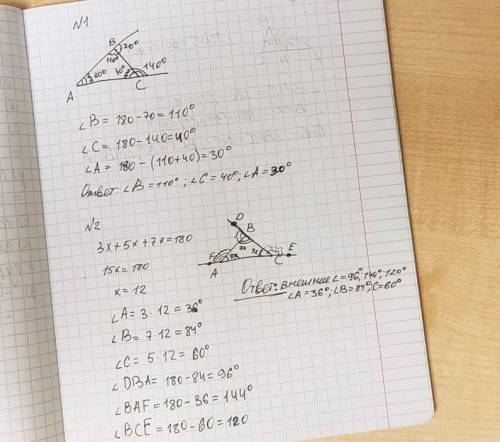 №1
B
70°
110°
A
30°
40°
140°
C
∠B = 180-70=110°
∠C = 180-140=40°
∠A = 180-(110+40)=30°
Ответ: ∠B=110°; ∠C=40°; ∠A=30°
№2
3x+5x+7x=180
15x=180
x=12
∠A = 3·12=36°
∠B = 7·12=84°
∠C = 5·12=60°
∠DBA = 180-84=96°
∠BAF = 180-36=144°
∠BCE = 180-60=120
D
B
F
A
C
E
Ответ: внешние ∠=96°; 140°; 120°
∠A=36°; ∠B=84°; C=60°